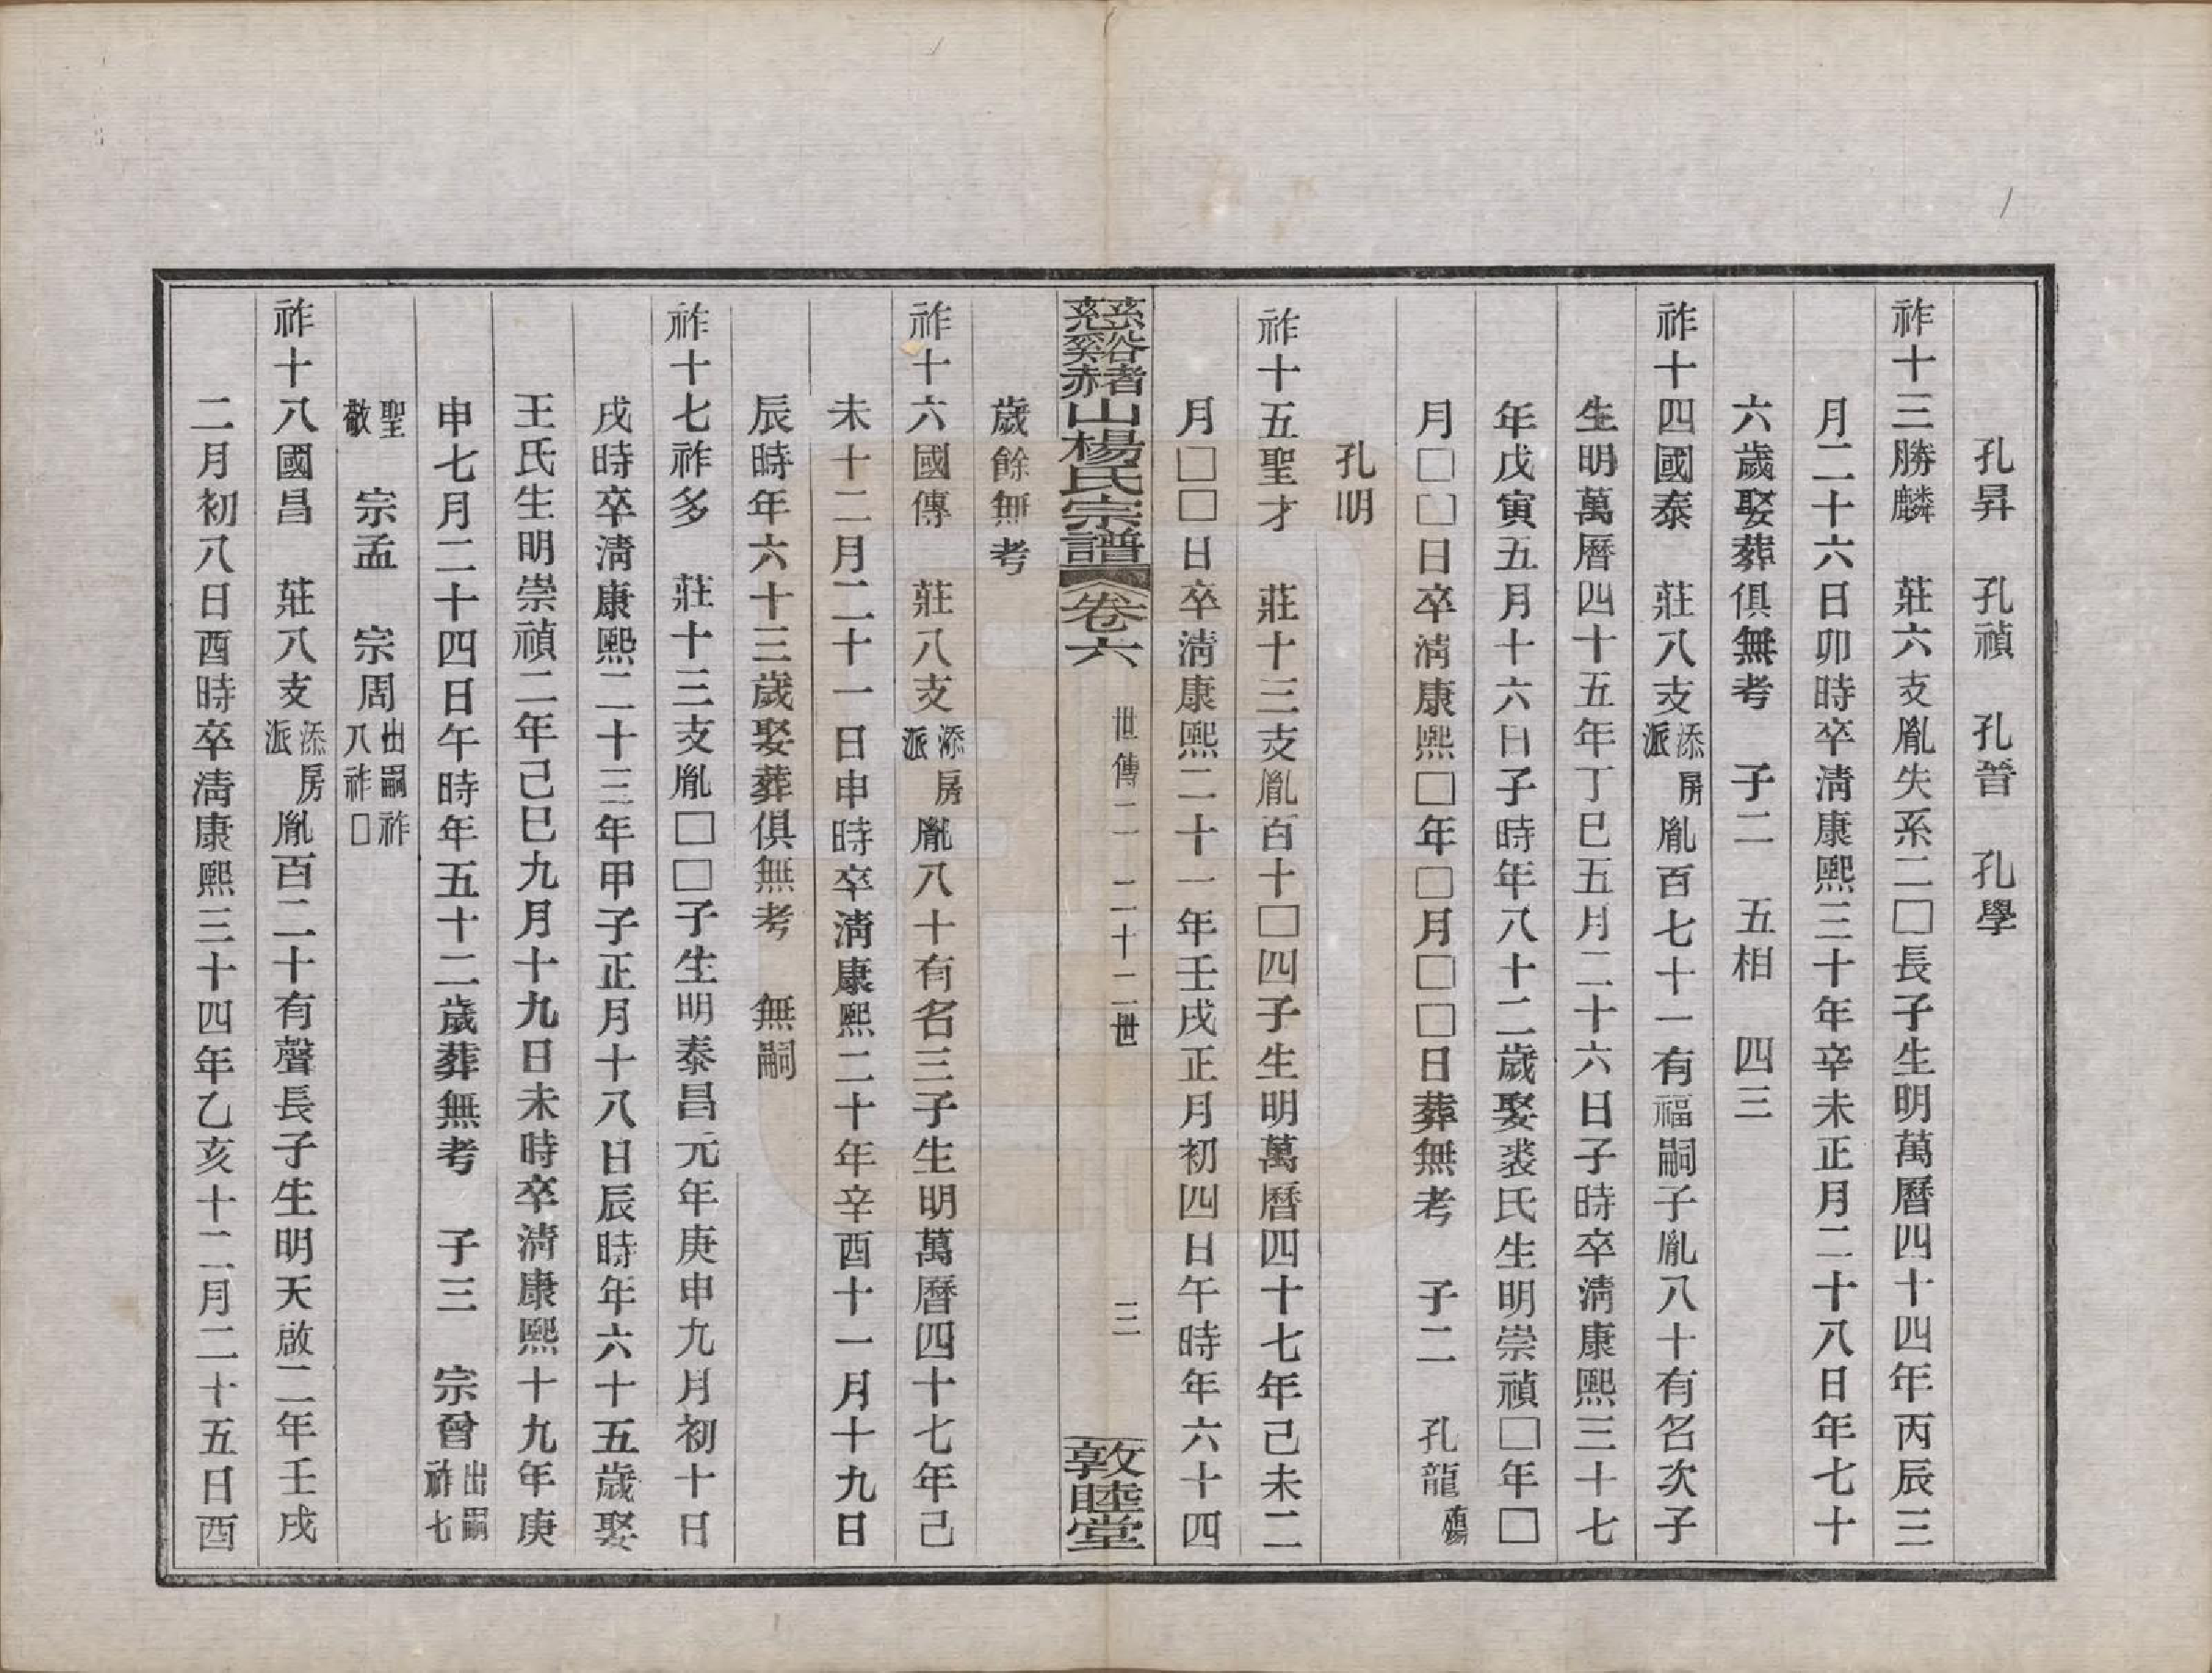 孔昇　孔禎　孔晉　孔學
祚十三勝麟　莊六支胤失系二□長子生明萬曆四十四年丙辰三
月二十六日卯時卒淸康熙三十年辛未正月二十八日年七十
六歲娶葬俱無考　子二　五相　四三
祚十四國泰　莊八支添房派胤百七十一有福嗣子胤八十有名次子
生明萬曆四十五年丁巳五月二十六日子時卒淸康熙三十七
年戊寅五月十六日子時年八十二歲娶裘氏生明崇禎□年□
月□□日卒淸康熙□年□月□□日葬無考　子二　孔龍
孔明
祚十五聖才　莊十三支胤百十□四子生明萬曆四十七年己未二
月□□日卒淸康熙二十一年壬戌正月初四日午時年六十四
慈谿赭山楊氏宗譜　卷六　世傳二　二十二世　三　敦睦堂
歲餘無考
祚十六國傳　莊八支添房派胤八十有名三子生明萬曆四十七年己
未十二月二十一日申時卒淸康熙二十年辛酉十一月十九日
辰時年六十三歲娶葬俱無考　無嗣
祚十七祚多　莊十三支胤□□子生明泰昌元年庚申九月初十日
戌時卒淸康熙二十三年甲子正月十八日辰時年六十五歲娶
王氏生明崇禎二年己巳九月十九日未時卒淸康熙十九年庚
申七月二十四日午時年五十二歲葬無考　子三　宗曾出嗣祚七
聖　宗孟　宗周出嗣祚八祚□
祚十八國昌　莊八支添房派胤百二十有聲長子生明天啟二年壬戌
二月初八日酉時卒淸康熙三十四年乙亥十二月二十五日酉